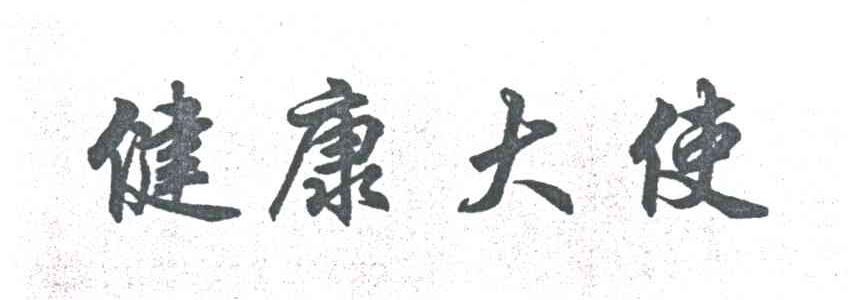 健康大使